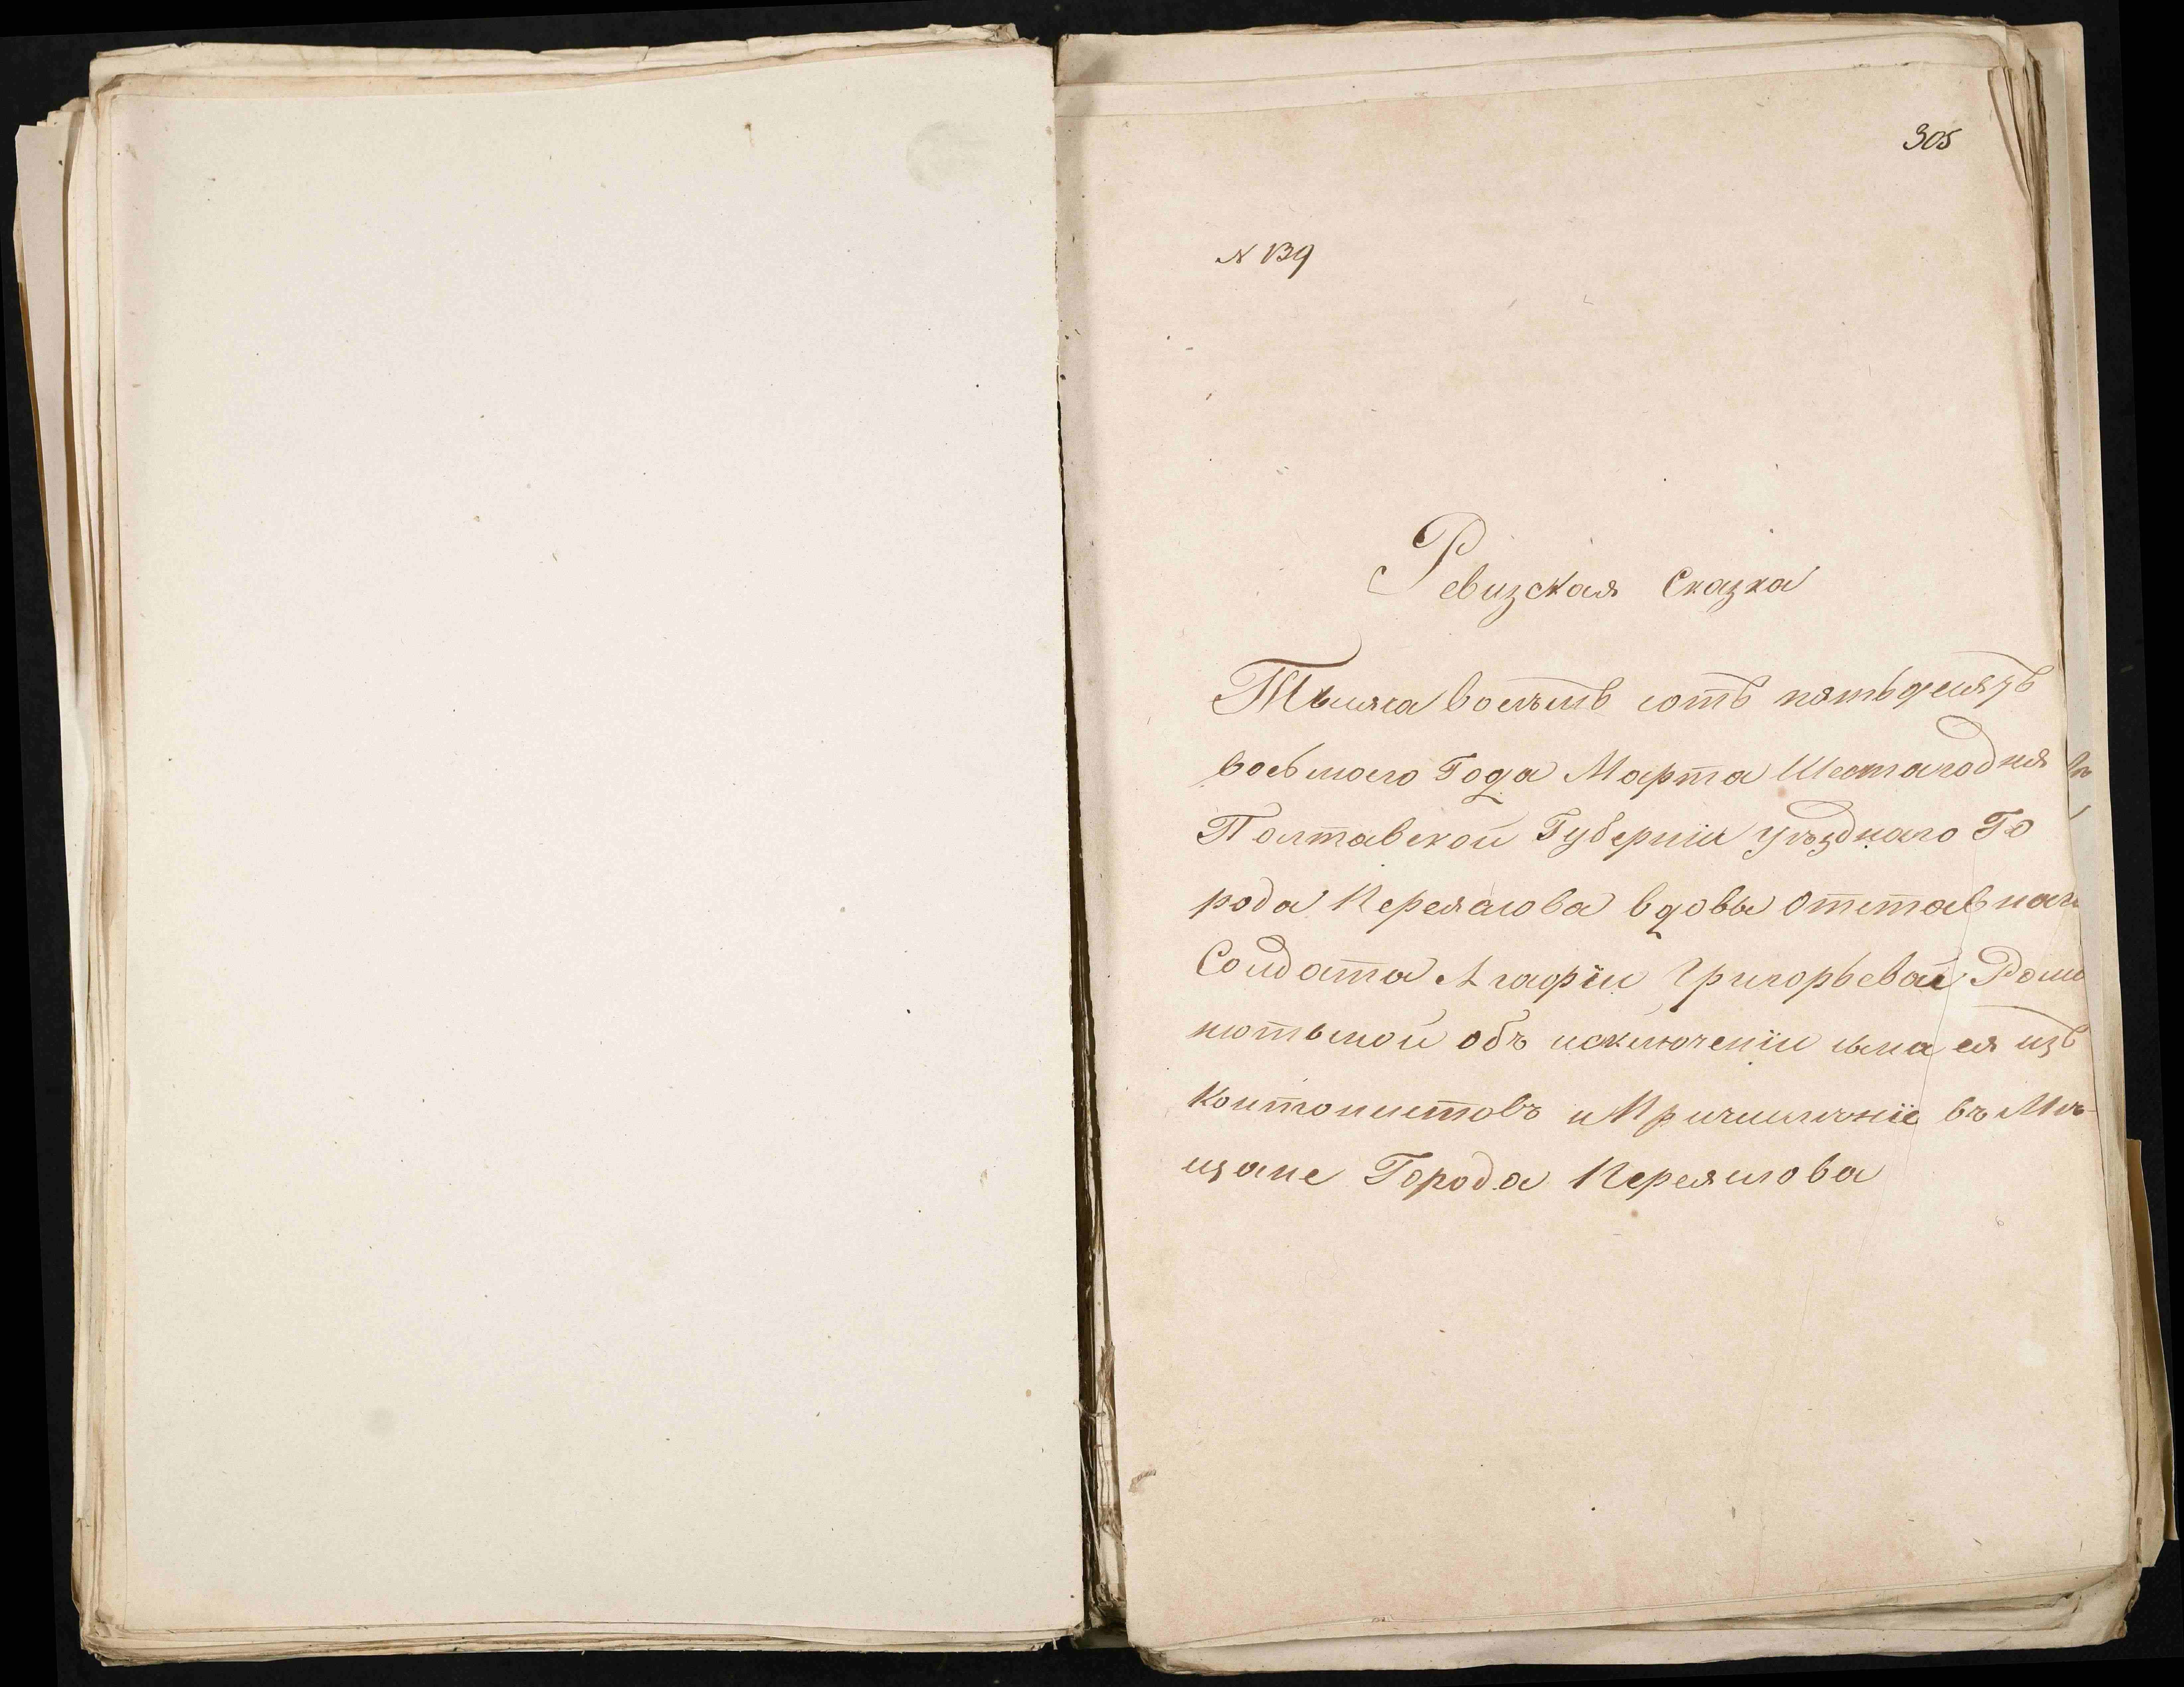 305
N 139
Ревизская Сказка
Тысяча восѣмъ сотъ пятьдесятъ
восьмого Года Марта Шестагодня
Полтавской Губерніи уѣзднаго Го
рода Переяслова вдовы Отставнаго
Солдата Агафіи Григорьевой
объ исключеніи сына ея изъ
Контонистовъ и Причисленіе въ Мѣ-
щане Города Переяслова